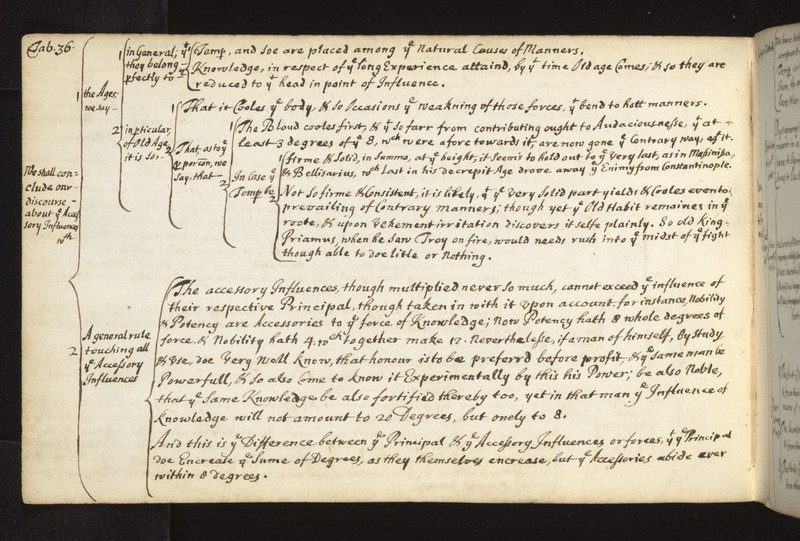 Tab. 36.
We shall con-
clude our
discourse -
about yͤ Acces
sory Influences
wͨͪ
1 the Ages;
we say -
1 in General; yͭ
they belong
pfectly to
1 Temp, and soe are placed among yͤ Natural Causes of Manners.
2 Knowledge, in respect of yͤ long Experience attaind, by yͤ time Old age Comes; & so they are
reduced to yͤ head in point of Influence.
2 in pticular,
of Old Age,
it is so -
1 That it Cooles yͤ body, & so Occasions yͤ weakning of those forces, yͭ bend to hott manners.
2 That, as to yͤ
person, we
say, that -
1 The Bloud cooles first, & yͭ so farr from contributing ought to Audaciousnesse, yͭ at -
least 3 degrees of yͤ 8, wͨͪ were afore towards it, are now gone yͤ Contrary way, as it.
2 In Case yͤ
Temp be
1 firme & Solid, in Summo, at yͤ height, it seems to hold out to yͤ very last, as in Massinissa,
& Bellisarius, wͨͪ last in his decrepit Age drove away yͤ Enimy from Constantinople.
2 Not so firme & Consistent, it is likely, yͭ yͤ very Solid part yields & Cooles even to
prevailing of Contrary manners; though yet yͤ Old Habit remaines in yͤ
roote, & upon vehement irritation discovers it selfe plainly. So old King -
Priamus, when he saw Troy on fire, would needs rush into yͤ midst of yͤ fight
though able to doe litle or nothing.
2 A general rule
touching all
yͤ Accessory
Influences
The accessory Influences, though multiplied never so much, cannot exceed yͤ influence of
their respective Principal, though taken in with it upon account. for instance, Nobility
& Potency are Accessories to yͤ force of Knowledge; Now Potency hath 8 whole degrees of
force, & Nobility hath 4. wͨͪ together make 12. Nevertheless, if a man of himself, By study
& use, doe very well know, that honour is to be preferrd before profit; & yͤ same man be
Powerfull, & so also Come to know it Experimentally by this his Power; be also Noble,
that yͤ same Knowledge be also fortified thereby too, yet in that man yͤ Influence of
Knowledge will not amount to 20 Degrees, but onely to 8.
And this is yͤ Difference between yͤ Principal & yͤ Accessory Influences or forces, yͭ yͤ Principal
doe Encrease yͤ Sume of Degrees, as they themselves encrease, but yͤ Accessories abide ever
within 8 degrees.